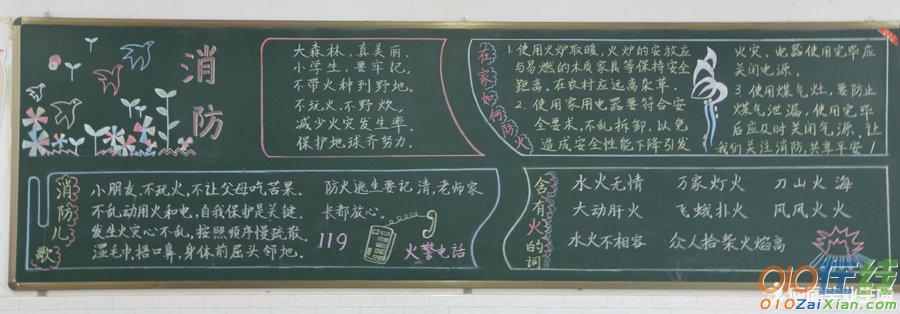 消防
大森林,真美丽。
小学生,要牢记,
不带火种到野地。
不玩火,不野炊,
减少火灾发生率。
保护地球齐努力。
在家如何防火
1.使用火炉取暖,火炉的安放应
与易燃的木质家具等保持安全
距离,在农村应远离杂草。
2.使用家用电器要符合安
全要求,不乱拆卸,以免
造成安全性能下降引发
火灾,电器使用完毕应
关闭电源。
3.使用煤气灶,要防止
煤气泄漏,使用完毕
后应及时关闭气源。让
我们关注消防,共享平安!
消防儿歌
小朋友,不玩火,不让父母吃苦果。
不乱动用火和电,自我保护是关键。
发生火灾心不乱,按照顺序慢疏散。
湿毛巾,捂口鼻,身体前屈头邻地。
防火逃生要记清,老师家
长都放心。
119
火警电话
含有火的词
水火无情 万家灯火 刀山火海
大动肝火 飞蛾扑火 风风火火
水火不相容 众人拾柴火焰高
010在线
010ZaiXian.com